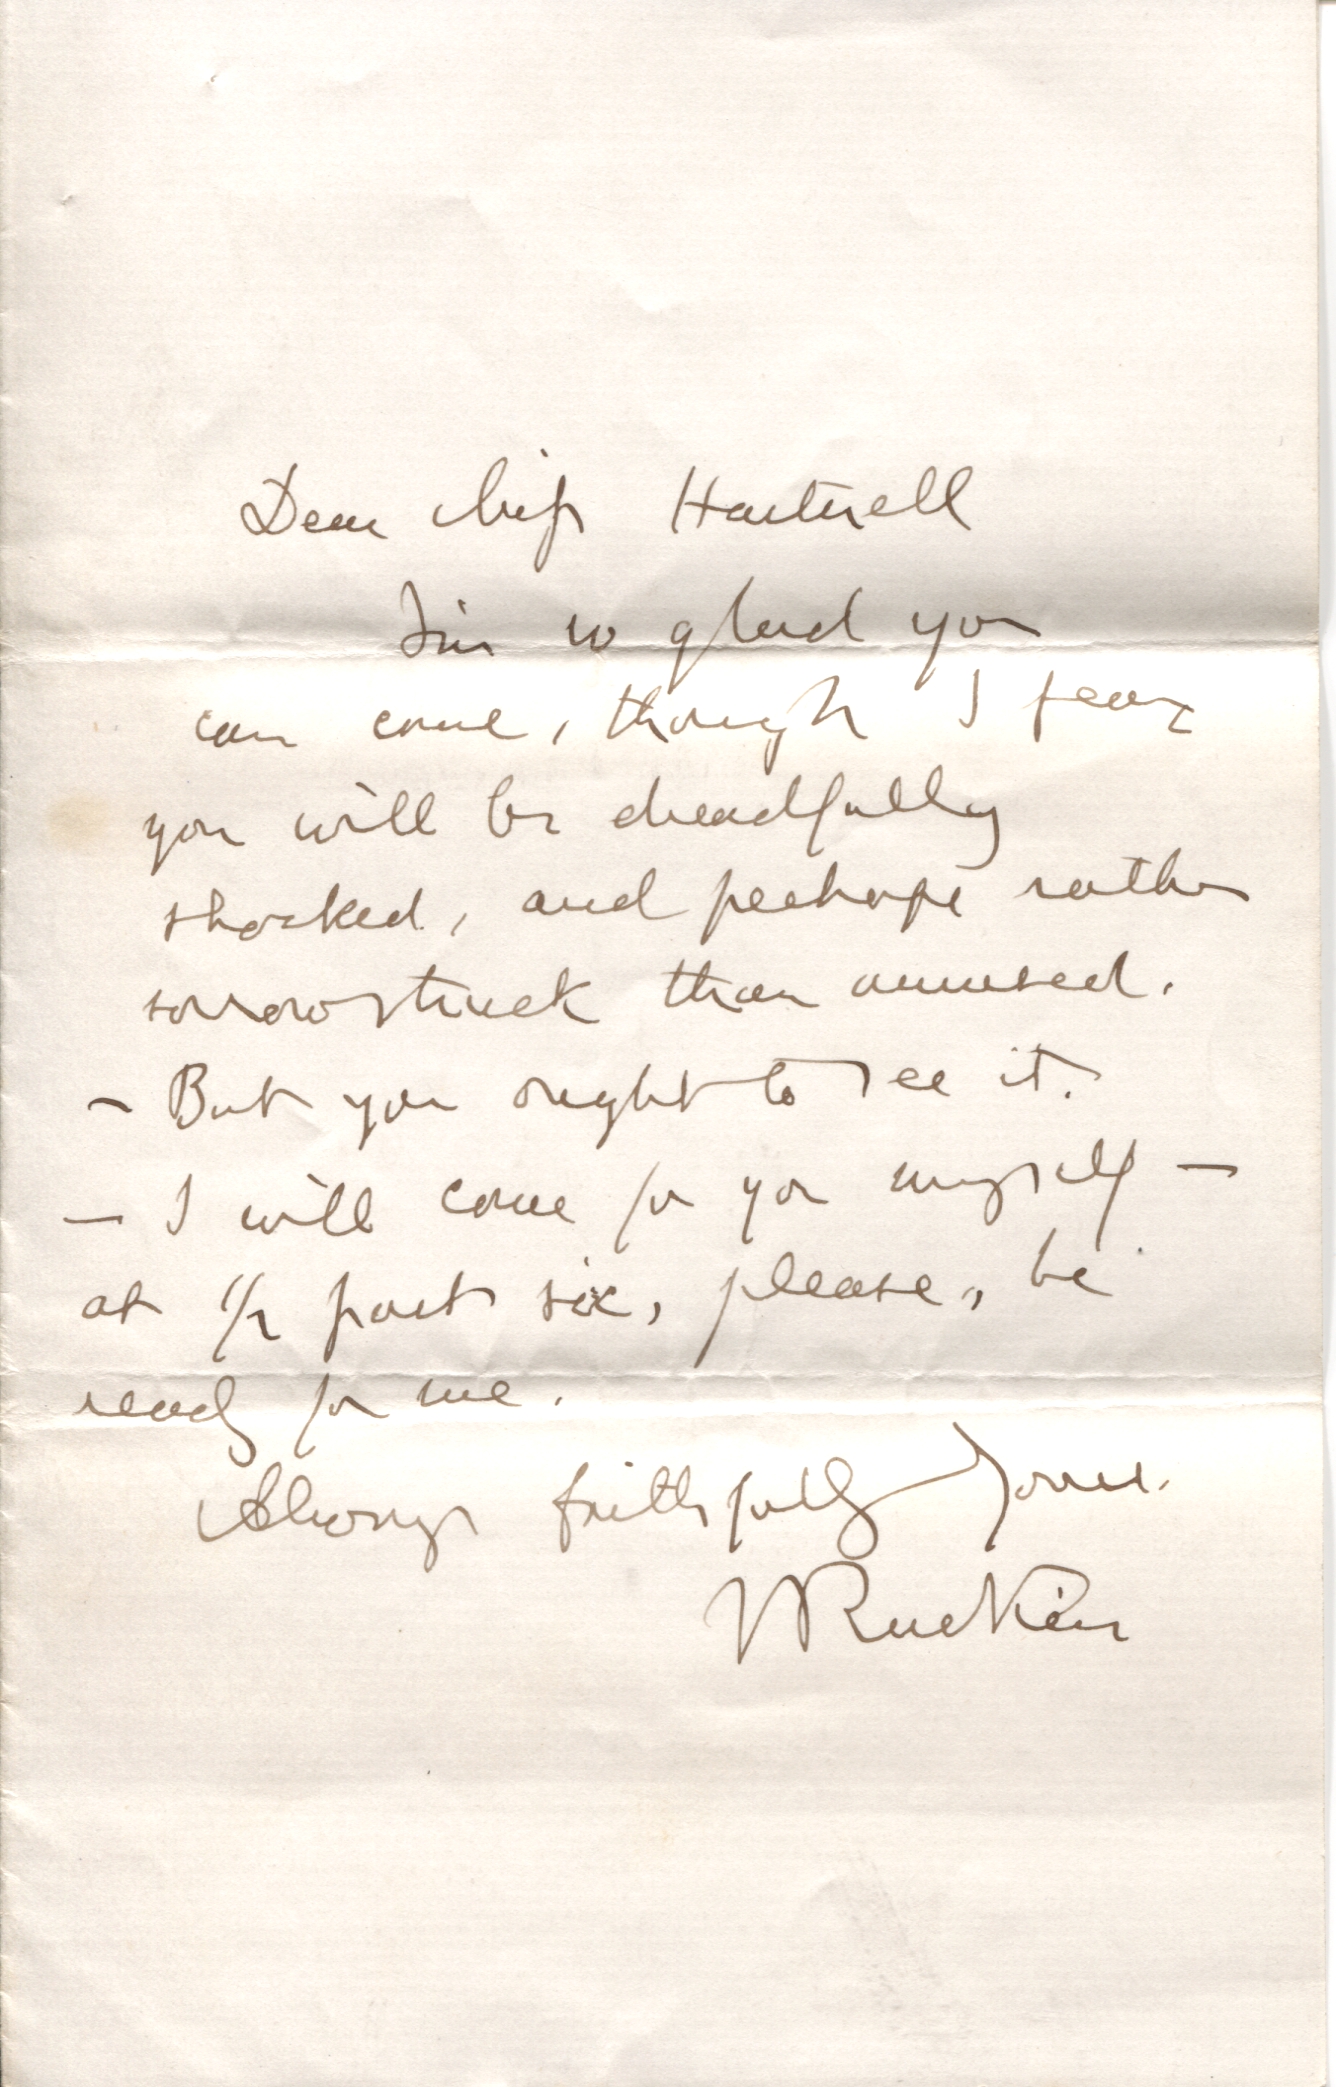 Dear Miss Hartnell
I'm so glad you
can come, though I fear
you will be dreadfully
shocked, and perhaps rather
sorrowstruck than amused.
- But you ought to see it.
- I will come for you myself -
at 1/2 past six, please, be
ready for me.
Always faithfully yours.
JRuskin